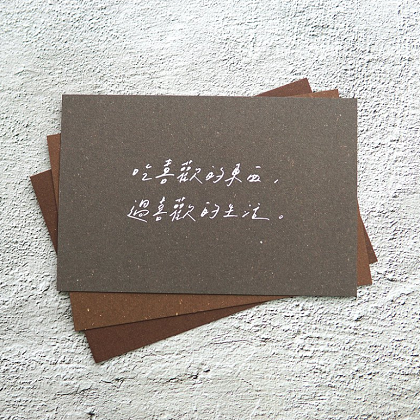 吃喜歡的東西，
過喜歡的生活。